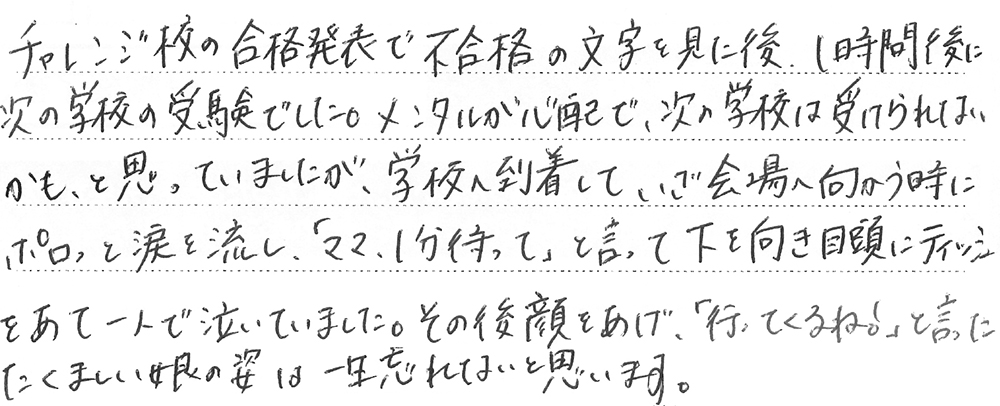 チャレンジ校の合格発表で不合格の文字を見た後、1時間後に
次の学校の受験でした。メンタルが心配で、次の学校は受けられない
かも、と思っていましたが、学校へ到着して、いざ会場へ向かう時に
ポロッと涙を流し、「ママ、1分待って」と言って下を向き目頭にティッシュ
をあて一人で泣いていました。その後顔をあげ、「行ってくるね!」と言った
たくましい娘の姿は一生忘れてないと思います。